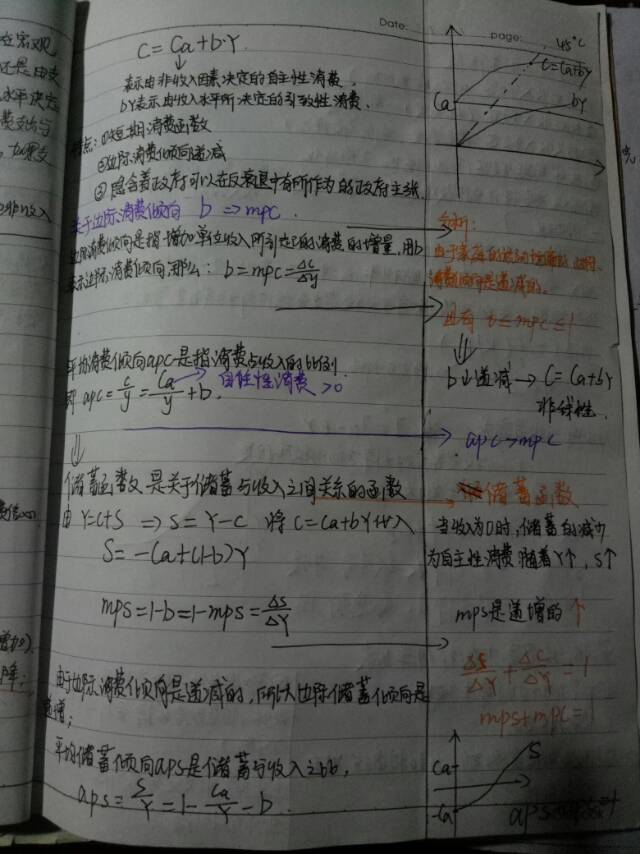 Date:
page:
C = Ca+b·Y
表示由非收入因素决定的自主性消费.
bY表示由收入水平所决定的引致性消费.
特点:①短期消费函数
②边际消费倾向递减
③隐含着政府可以在反衰退中有所作为的政府主张.
关于边际消费倾向 b ⇒ mpc.
边际消费倾向是指增加单位收入所引起的消费的增量,用b
表示边际消费倾向,那么: b=mpc=ΔC/ΔY
平均消费倾向apc是指消费与收入的比例.
即 apc=C/Y=Ca/Y+b. 自主性消费>0
储蓄函数是关于储蓄与收入之间关系的函数
由 Y=C+S ⇒ S=Y-C 将 C=Ca+bY代入
S=-Ca+(1-b)Y
mps=1-b=1-mps=ΔS/ΔY
由于边际消费倾向是递减的,所以边际储蓄倾向是
递增;
平均储蓄倾向aps是储蓄与收入之比,
aps=S/Y=1-Ca/Y-b.
45°C
C=Ca+bY
Ca
bY
分析:
消费倾向是递减的.
≤mpc≤1
b↓递减→C=Ca+bY
非线性.
apc>mpc
储蓄函数
当收入为0时,储蓄的减少
为自主性消费.随着Y↑,S↑
mps是递增的↑
ΔS/ΔY+ΔC/ΔY=1
mps+mpc=1
Ca
S
-Ca
aps